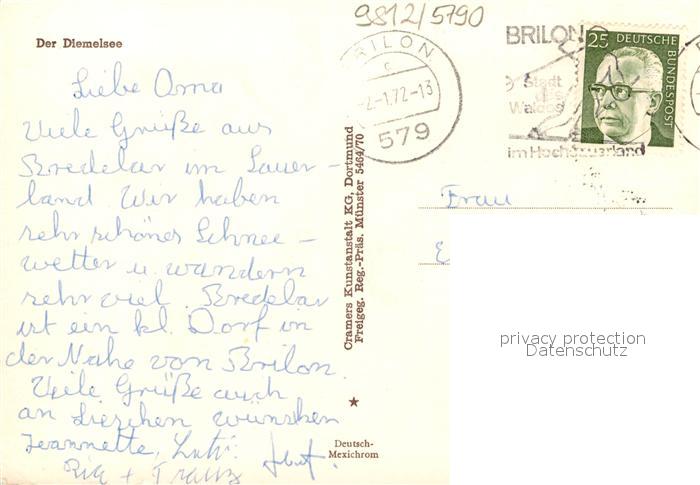 9812/5790
Der Diemelsee
BRILON
c
-2.-1.72-13
579
BRILON
Stadt
des
Waldes
im Hochsauerland
25 DEUTSCHE BUNDESPOST
Liebe Oma
Viele Grüße aus
Bredelar im Sauer-
land. Wir haben
sehr schönes Schnee-
wetter u. wandern
sehr viel. Bredelar
ist ein kl. Dorf in
der Nähe von Brilon.
Viele Grüße auch
an Lieschen wünschen
Jeannette,
+ Franz
Cramers Kunstanstalt KG, Dortmund
Freigeg. Reg.-Präs. Münster 5464/70
Deutsch-
Mexichrom
Frau
E
privacy protection
Datenschutz